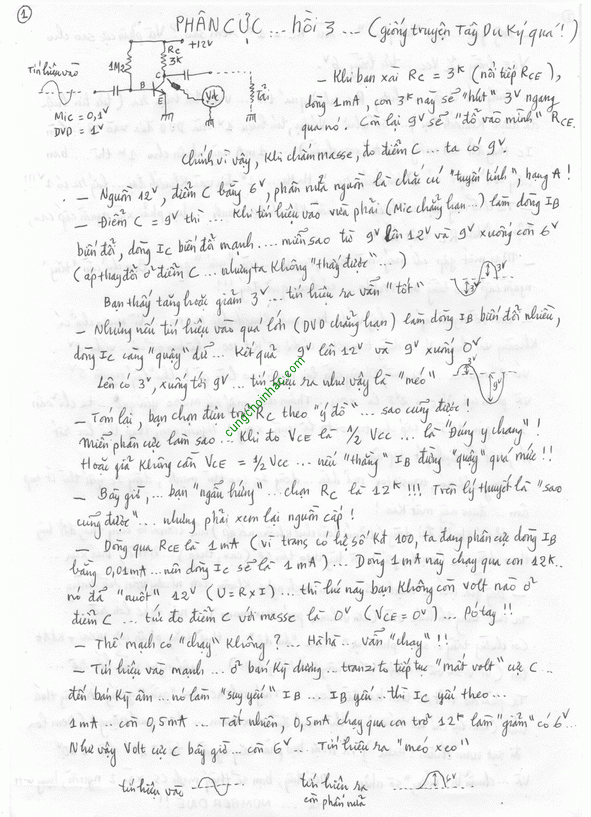 ① PHÂN CỰC ... hồi 3 ... (giống truyện Tây Du Ký quá !)
+12V
RC
3K
1MΩ
Tín hiệu vào
C
B
E
VA
Tải
Mic = 0,1V
DVD = 1V
– Khi bạn xài RC = 3K (nối tiếp RCE),
dòng 1mA, con 3K này sẽ "hút" 3V ngang
qua nó. Còn lại 9V sẽ "đổ vào mình" RCE.
Chính vì vậy, khi chấm masse, đo điểm C ... ta có 9V.
– Nguồn 12V, điểm C bằng 6V, phân nửa nguồn là chắc cú "tuyến tính", hạng A !
– Điểm C = 9V thì ... Khi tín hiệu vào vừa phải (Mic chẳng hạn ...) làm dòng IB
biến đổi, dòng IC biến đổi mạnh .... miễn sao từ 9V lên 12V và 9V xuống còn 6V
(áp thay đổi ở điểm C ... nhưng ta không "thấy được" ...)
Bạn thấy tăng hoặc giảm 3V ... tín hiệu ra vẫn "tốt"
3V
3V
– Nhưng nếu tín hiệu vào quá lớn (DVD chẳng hạn) làm dòng IB biến đổi nhiều,
dòng IC càng "quậy" dữ ... Kết quả 9V lên 12V và 9V xuống 0V
Lên có 3V, xuống tới 9V ... tín hiệu ra như vậy là "méo"
3V
9V
– Tóm lại, bạn chọn điện trở RC theo "ý đồ" ... sao cũng được !
Miễn phân cực làm sao ... Khi đo VCE là 1/2 VCC ... là "Đúng y chang" !
Hoặc giả không cần VCE = 1/2 VCC ... nếu "thằng" IB đừng "quậy" quá mức !!
– Bây giờ, ... bạn "ngẫu hứng" ... chọn RC là 12K !!! Trên lý thuyết là "sao
cũng được" ... nhưng phải xem lại nguồn cấp !
– Dòng qua RCE là 1mA (vì trans có hệ số Kđ 100, ta đang phân cực dòng IB
bằng 0,01mA ... nên dòng IC sẽ là 1mA) ... Dòng 1mA này chạy qua con 12K ..
nó đã "nuốt" 12V (U = R x I) ... thì lúc này bạn không còn volt nào ở
điểm C ... tức đo điểm C với masse là 0V (VCE = 0V) ... Pó tay !!
– Thế mạch có "chạy" không ? ... Hà hà .. vẫn "chạy" !!
– Tín hiệu vào mạnh ... ở bán kỳ dương ... tranzito tiếp tục "mất volt" cực C ...
đến bán kỳ âm ... nó làm "suy yếu" IB ... IB yếu .. thì IC yếu theo ...
1mA .. còn 0,5mA .... Tất nhiên, 0,5mA chạy qua con trở 12K làm "giảm" có 6V ..
Như vậy Volt cực C bây giờ ... còn 6V ... Tín hiệu ra "méo xẹo"
tín hiệu vào
tín hiệu ra
còn phân nửa
6V
cungchoinhac.com